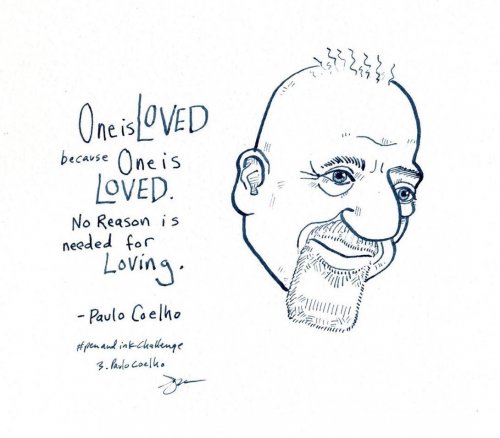 One is LOVED
because One is
LOVED.
No Reason is
needed for
Loving.
- Paulo Coelho
#penandinkchallenge
3. Paulo Coelho